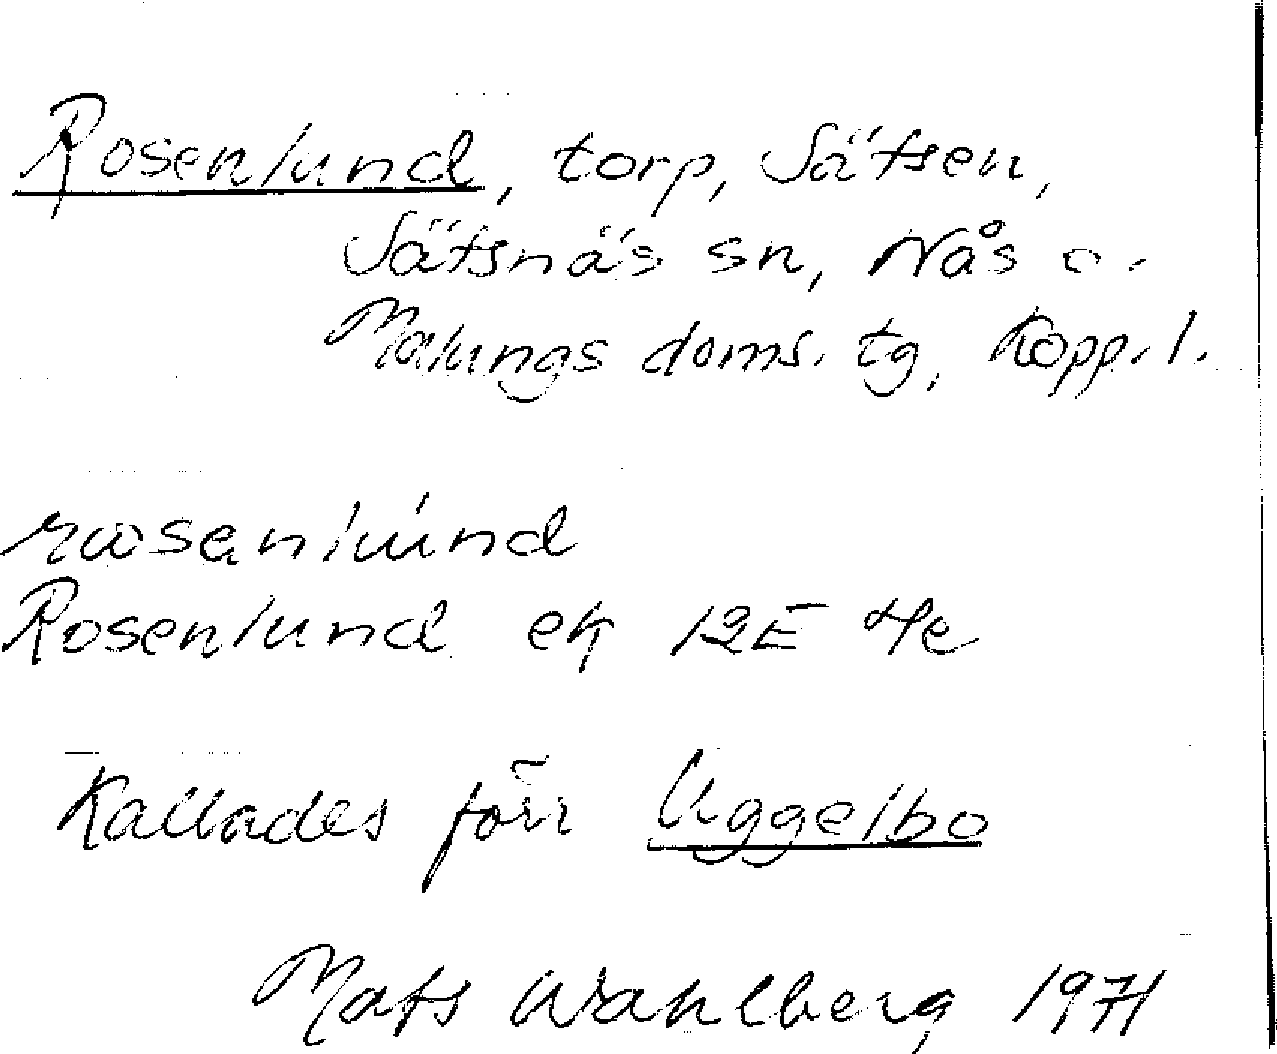 Rosenlund, torp, Sätsen,
Sätsnäs sn, Nås o.
Malungs doms. tg, Kopp. l.
Rosenlund ek 12E 4e
Kallades förr Uggelbo
Mats Wahlberg 1971